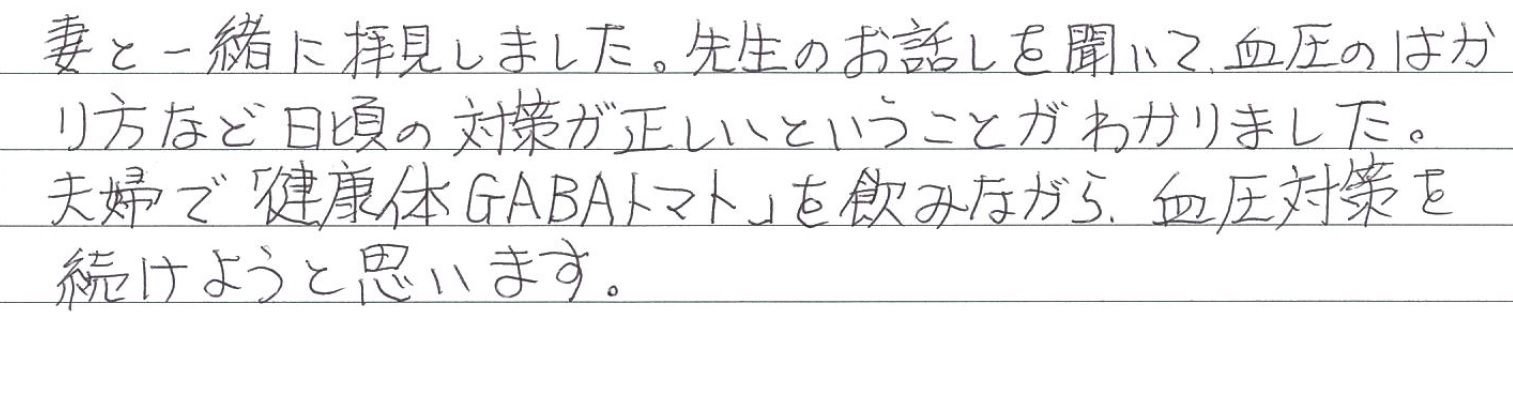 妻と一緒に拝見しました。先生のお話しを聞いて、血圧のはか
り方など日頃の対策が正しいということがわかりました。
夫婦で「健康体GABAトマト」を飲みながら、血圧対策を
続けようと思います。